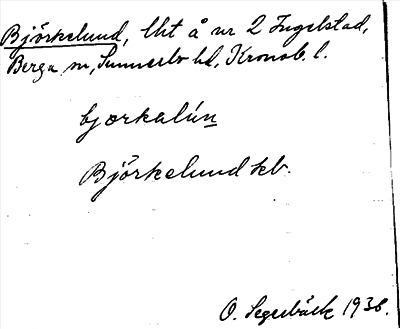 Björkelund, lht å nr 2 Ingelstad,
Berga sn, Sunnerbo hd, Kronob. l.
bjorkalún
Björkelund kb.
O. Segerbäck 1938.